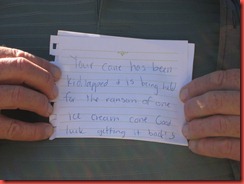 Your cone has been
kidnapped & is being held
for the ransom of one
Ice cream cone Good
luck getting it back!